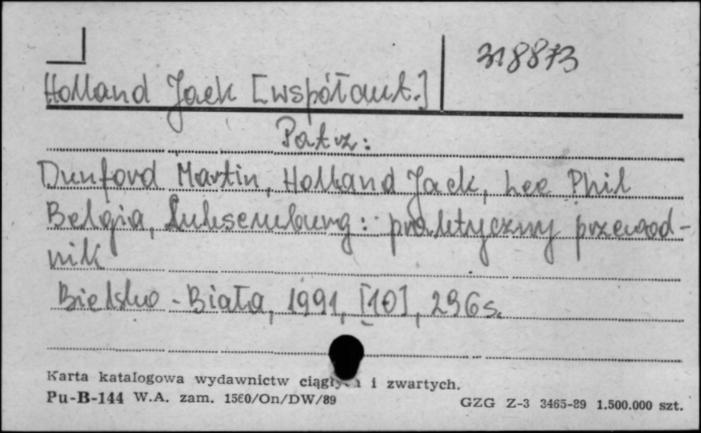 318873
Holland Jack [współaut.]
Patrz:
Dunford Martin, Holland Jack, Lee Phil
Belgia, Luksemburg: praktyczny przewod-
nik
Bielsko-Biała, 1991, [10], 296 s.
Karta katalogowa wydawnictw ciągłych i zwartych.
Pu-B-144 W.A. zam. 1560/On/DW/89
GZG Z-3 3465-89 1.500.000 szt.